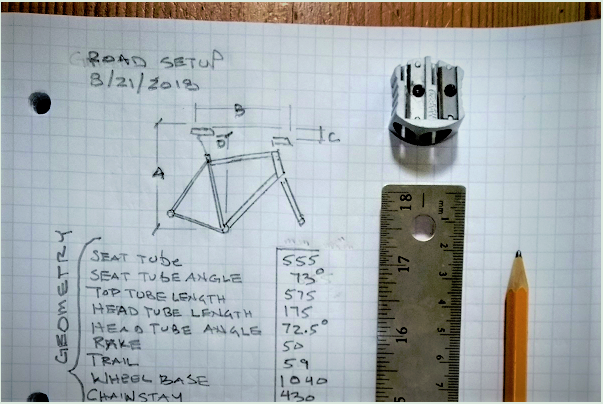 ROAD SETUP
8/21/2018
B
C
D
A
GEOMETRY
SEAT TUBE 555
SEAT TUBE ANGLE 73°
TOP TUBE LENGTH 575
HEAD TUBE LENGTH 175
HEAD TUBE ANGLE 72.5°
RAKE 50
TRAIL 59
WHEEL BASE 1040
CHAINSTAY 430
18
mm
17
16
2
3
4
5
6
7